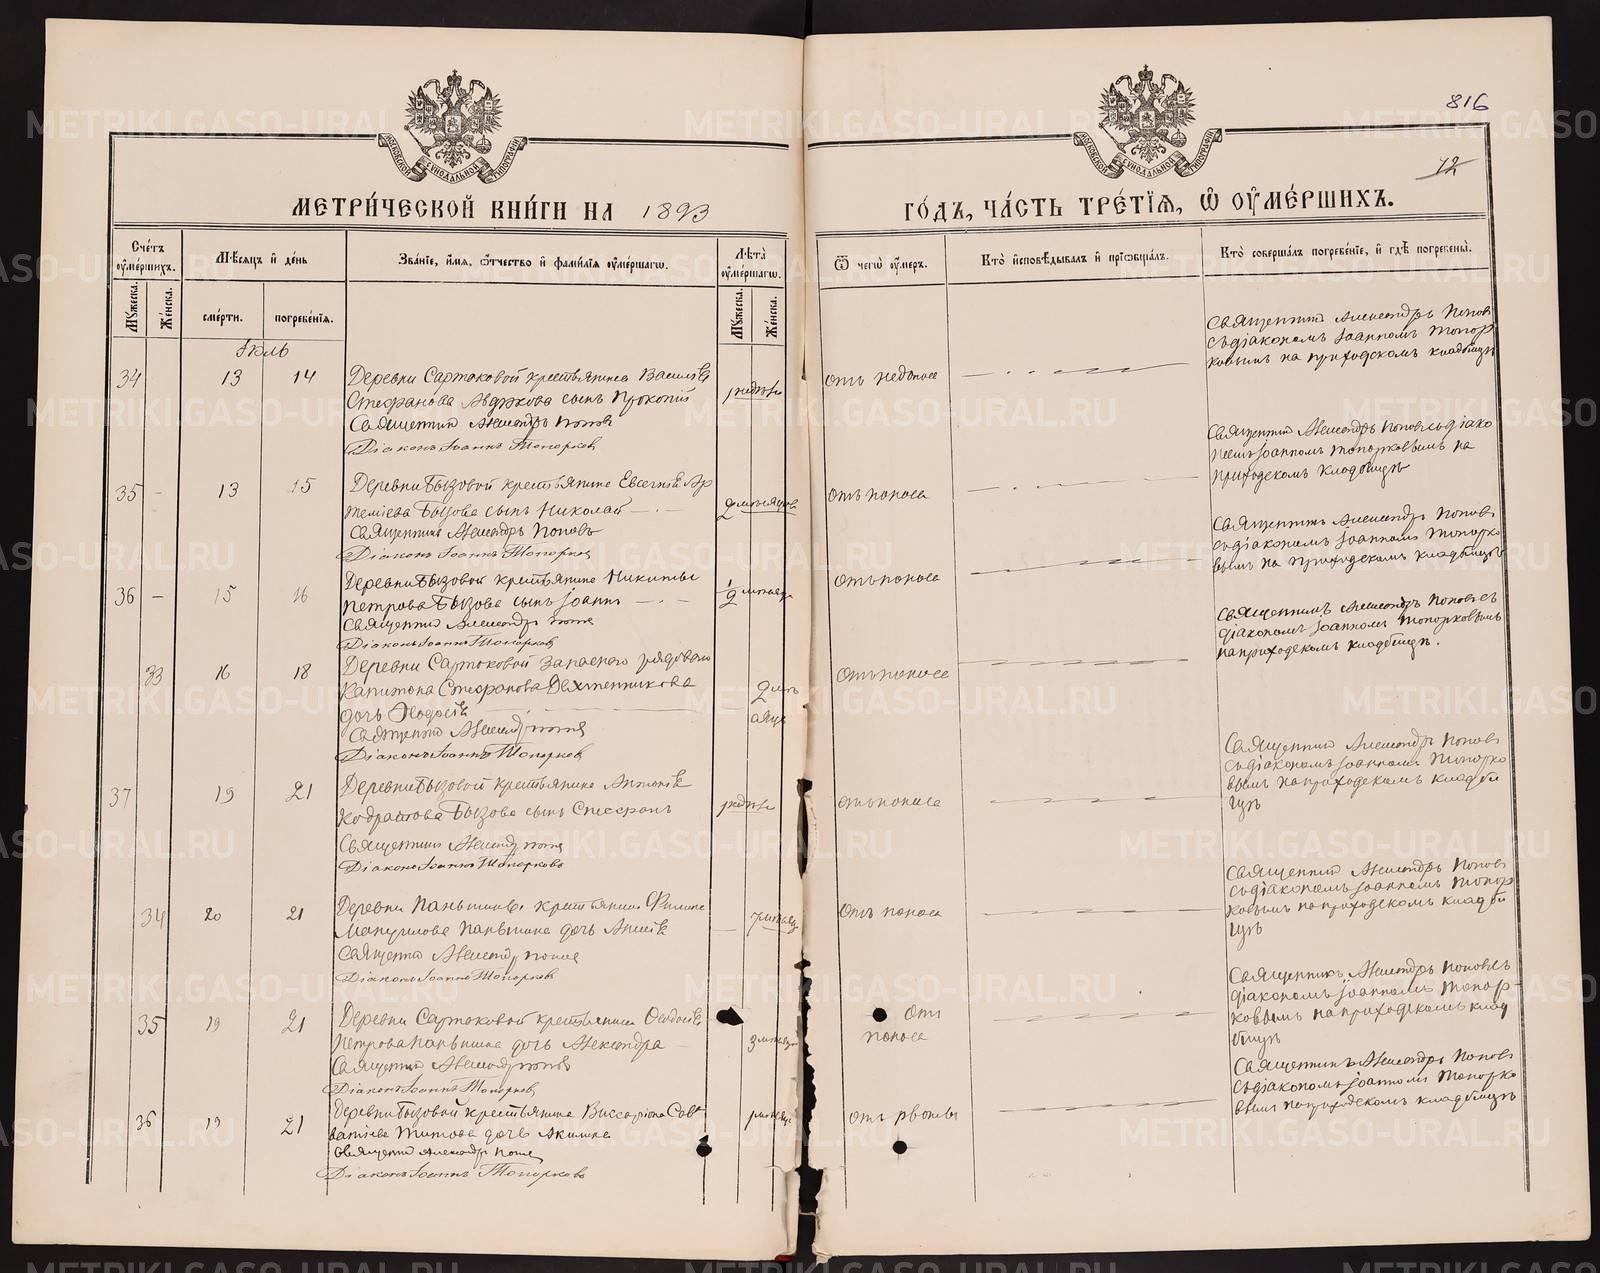 816
42
МОСКОВСКОЙ СѴНОДАЛЬНОЙ ТИПОГРАФІИ
МОСКОВСКОЙ СѴНОДАЛЬНОЙ ТИПОГРАФІИ
МЕТРИ́ЧЕСКОЙ КНИ́ГИ НА 1893
ГО́ДЪ, ЧА́СТЬ ТРЕ́ТІЯ, Ѿ ОУМЕ́РШИХЪ.
Сче́тъ оумершихъ.
Мужеска.
Же́нска.
Мѣсяцъ и де́нь
сме́рти.
погребе́нія.
Зва́ніе, и́мя, о́тчество и фами́лія оуме́ршагѡ.
Лѣта̀ оуме́ршагѡ.
Мужеска.
Же́нска.
Ѿ чегѡ̀ оу́меръ.
Кто̀ исповѣ́дывалъ и пріѡбща́лъ.
Кто̀ соверша́лъ погребе́ніе, и гдѣ̀ погребены̀.
Іюль
34 13 14
Деревни Сартаковой крестьянина Василія
Стефанова сынъ Прокопій
Священникъ Александръ Поповъ
Діаконъ Іоаннъ Топорковъ
отъ
Священникъ Александръ Поповъ
съ діакономъ Іоанномъ Топор
ковымъ на приходскомъ кладбищѣ
35 - 13 15
Деревни Бызовой крестьянина Евсегнѣя Ар
теміева Бызова сынъ Николай
Священникъ Александръ Поповъ
Діаконъ Іоаннъ Топорковъ
2 мѣсяцовъ
отъ поноса
Священникъ Александръ Поповъ съ діако
номъ Іоанномъ Топорковымъ на
приходскомъ кладбищѣ
36 - 15 16
Деревни Бызовой крестьянина Никиты
Петрова Бызова сынъ Іоаннъ
Священникъ Александръ Поповъ
Діаконъ Іоаннъ Топорковъ
1/2 мѣсяца
отъ поноса
Священникъ Александръ Поповъ
съ діакономъ Іоанномъ Топорко
вымъ на приходскомъ кладбищѣ
33 16 18
Деревни Сартаковой запаснаго рядового
Капитона Стефанова
дочь
Священникъ Александръ Поповъ
Діаконъ Іоаннъ Топорковъ
2 мѣ
сяца
отъ поноса
Священникъ Александръ Поповъ съ
діакономъ Іоанномъ Топорковымъ
на приходскомъ кладбищѣ.
37 19 21
Деревни Бызовой крестьянина Антонія
Кодратова Бызова сынъ Стефанъ
Священникъ Александръ Поповъ
Діаконъ Іоаннъ Топорковъ
отъ поноса
Священникъ Александръ Поповъ
съ діакономъ Іоанномъ Топорко
вымъ на приходскомъ кладби
щѣ
34 20 21
Деревни Паньшины крестьянина Филипа
Мануилова Паньшина дочь
Священникъ Александръ Поповъ
Діаконъ Іоаннъ Топорковъ
7 мѣсяц
отъ поноса
Священникъ Александръ Поповъ
съ діакономъ Іоанномъ Топор
ковымъ на приходскомъ кладби
щѣ
35 19 21
Деревни Сартаковой крестьянина Феодосія
Петрова Паньшина дочь Александра
Священникъ Александръ Поповъ
Діаконъ Іоаннъ Топорковъ
3 мѣсяц
отъ
поноса
Священникъ Александръ Поповъ съ
діакономъ Іоанномъ Топор-
ковымъ на приходскомъ клад
бищѣ
36 19 21
Деревни Бызовой крестьянина Виссаріона Сав
ватіева Титова дочь Акилина
Священникъ Александръ Поповъ
Діаконъ Іоаннъ Топорковъ
отъ рвоты
Священникъ Александръ Поповъ
съ діакономъ Іоанномъ Топорко
вымъ на приходскомъ кладбищѣ
METRIKI.GASO-URAL.RU